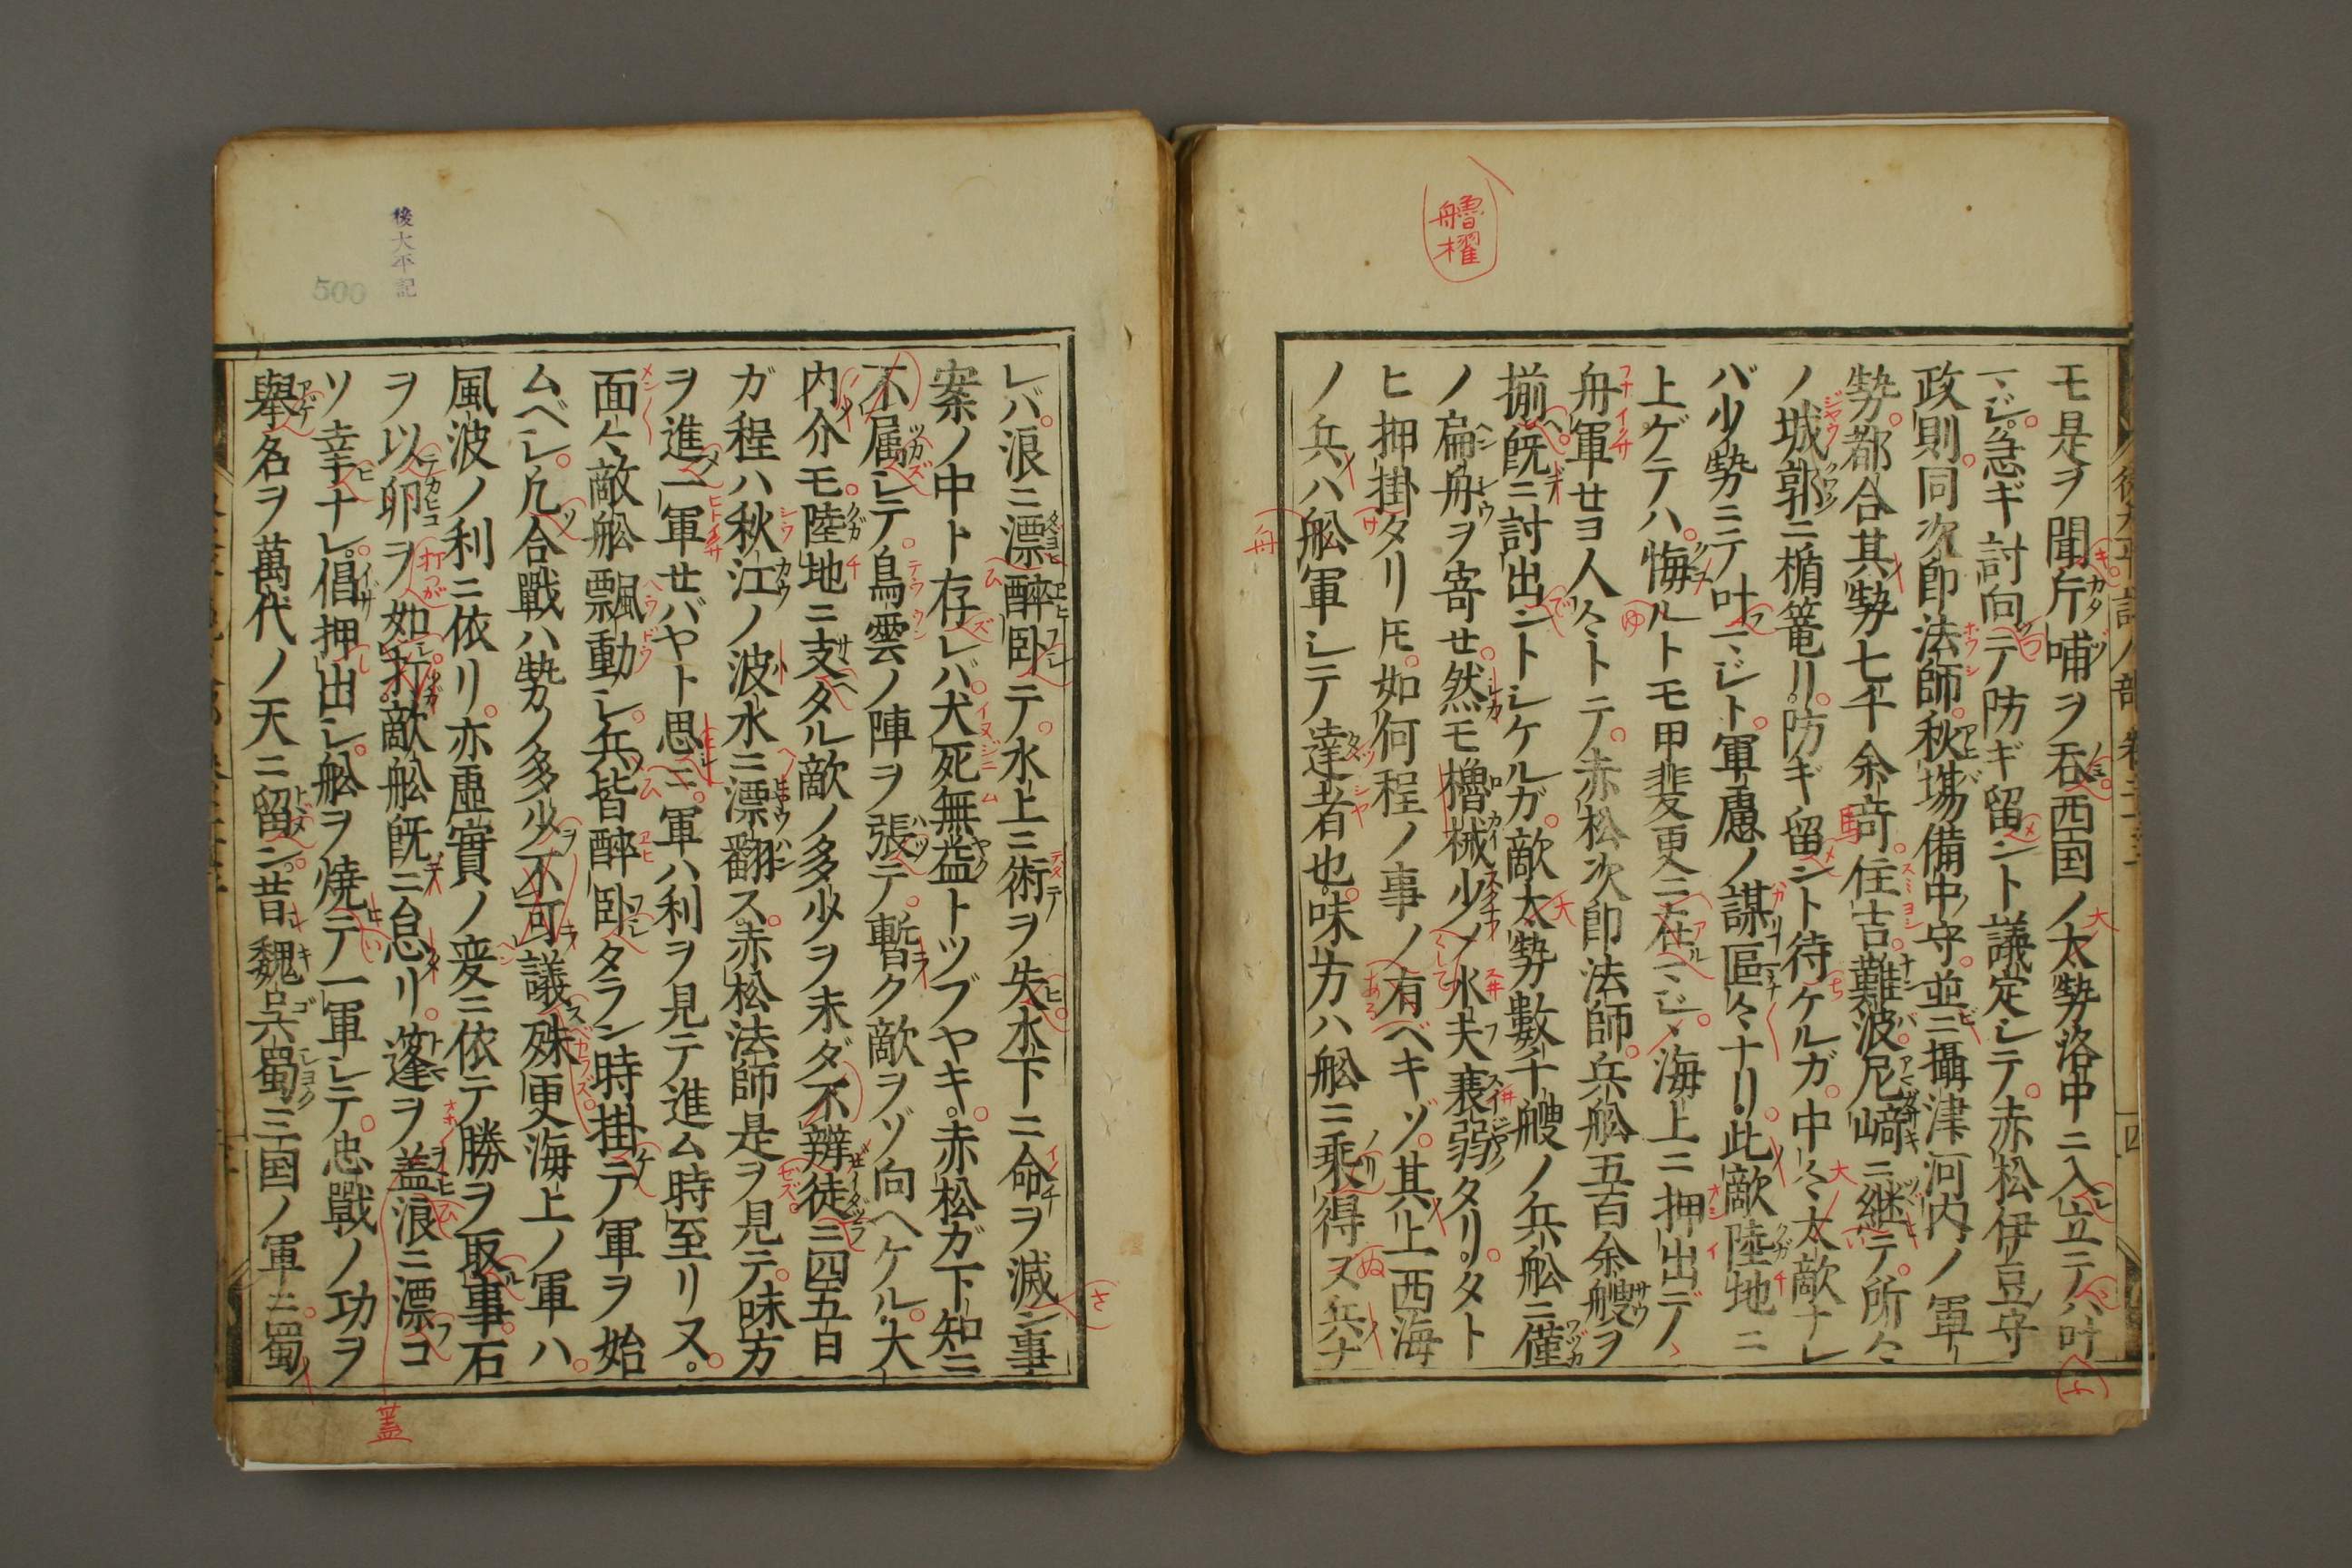 艪
櫂
モ是ヲ聞片哺ヲ呑西国ノ太勢洛中ニ入立テハ叶
マジ急ギ討向テ防ギ留ント議定シテ赤松伊豆守
政則同次郎法師秋塲備中守並ニ攝津河内ノ軍
勢都合其勢七千余竒住吉難波尼﨑ニ継テ所々
ノ城郭ニ楯篭リ防ギ留ント待ケルガ中々太敵ナレ
バ少勢ニテ叶マジト軍慮ノ謀區々ナリ此敵陸地ニ
上ゲテハ悔ルトモ甲斐更ニ在マジ海上ニ押出デ
舟軍せヨ人々トテ赤松次郎法師兵舩五百余艘ヲ
揃既ニ討出ントシケルガ敵太勢數千艘ノ兵舩ニ僅
ノ扁舟ヲ寄せ然モ櫓械少ノ水夫衰弱タリタト
ヒ押掛タリ𪜈如何程ノ事ノ有ベキゾ其上西海
ノ兵ハ舩軍シテ達者也味方ハ舩ニ乘得ヌ兵ナ
舟
後太平記
500
レバ浪ニ漂醉卧テ水上ニ術ヲ失水下ニ命ヲ滅ン事
案ノ中ト存レバ犬死無益トツブヤキ赤松ガ下知ニ
不属シテ鳥雲ノ陣ヲ張テ暫ク敵ヲゾ向ヘケル大
内介モ陸地ニ支タル敵ノ多少ヲ未ダ不辨徒ニ四五百
ガ程ハ秋江ノ波水ニ漂翻ス赤松法師是ヲ見テ味方
ヲ進一軍せバヤト思ニ軍ハ利ヲ見テ進ム時至リヌ
面々敵舩飄動シ兵皆醉卧タラン時掛テ軍ヲ始
ムベシ凡合戰ハ勢ノ多少不可議殊更海上ノ軍ハ
風波ノ利ニ依リ亦虚實ノ変ニ依テ勝ヲ取事石
ヲ以卵ヲ如打敵舩既ニ怠リ篷ヲ盖浪ニ漂コ
ソ幸ナレ倡押出シ舩ヲ焼テ一軍シテ忠戰ノ功ヲ
舉名ヲ萬代ノ天ニ留ン昔魏呉蜀三国ノ軍ニ蜀
蓋